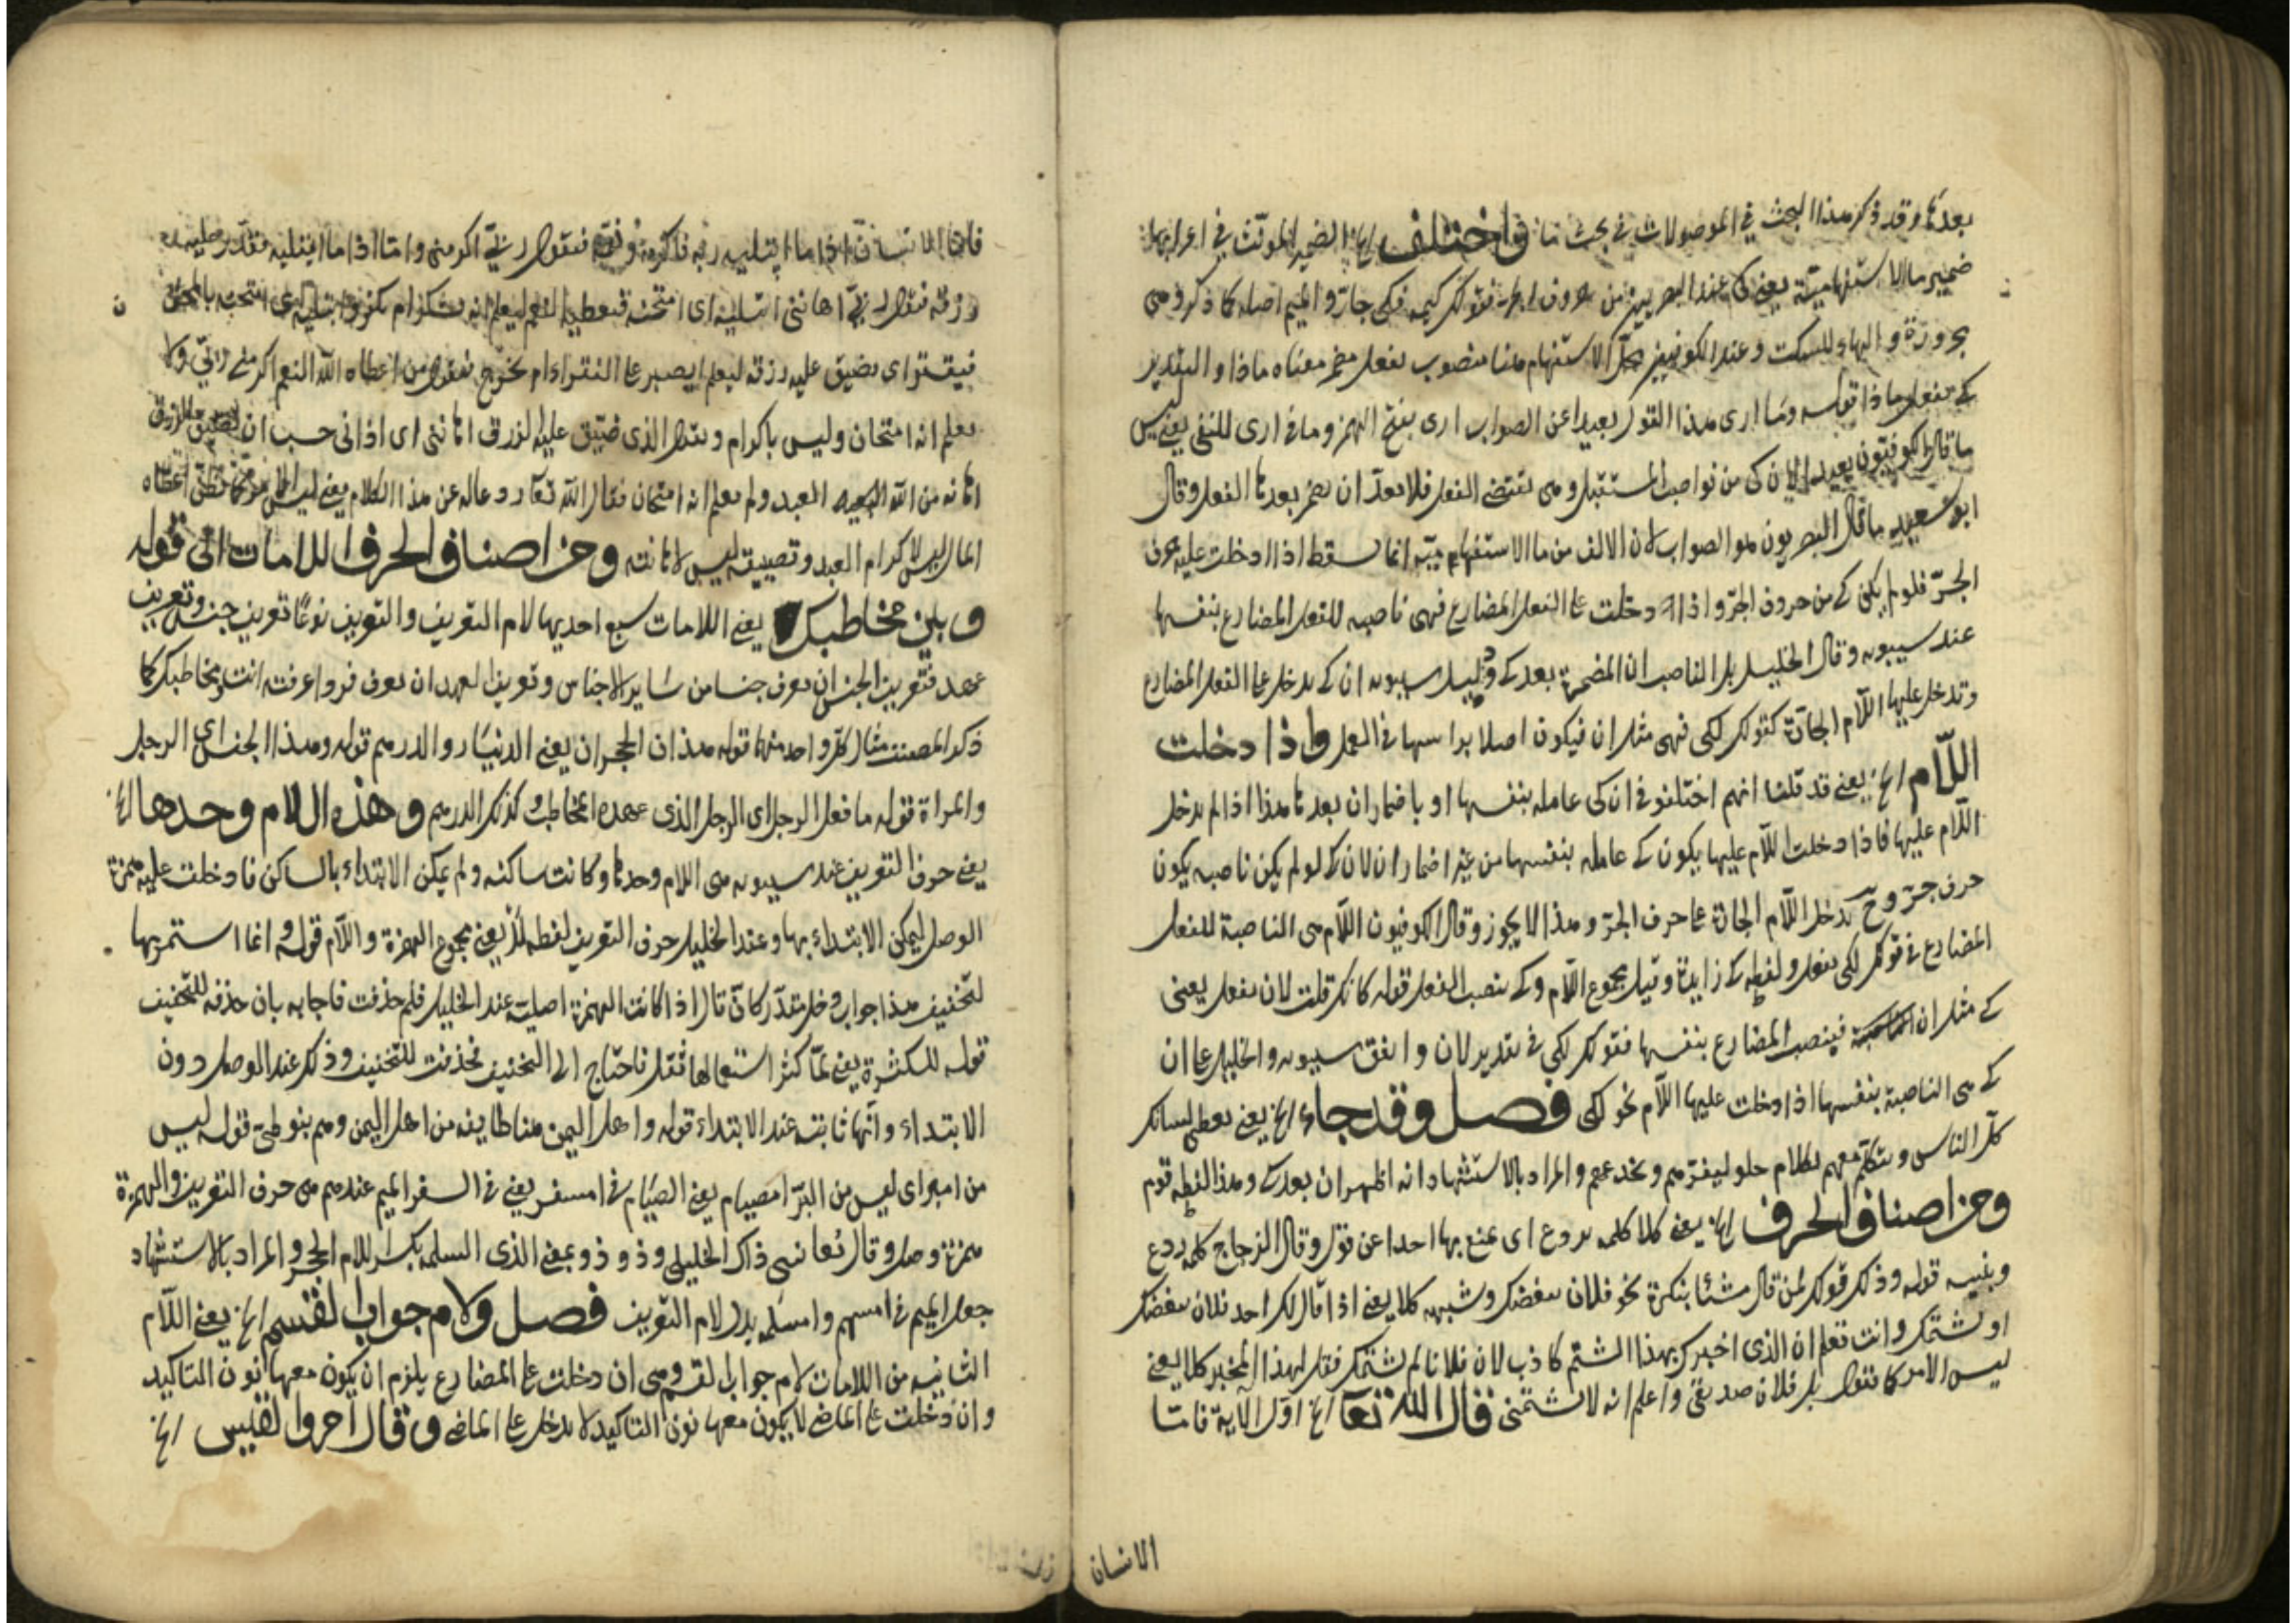 بعدها وقد ذكر هذا البحث في الموصولات في بحث ما واختلف الخ الضمير المؤنث في اعرابها
ضمير ما الاستفهامية يعني كي عند البصريين من حروف الجر فقولك كيمه فكي جارة والميم اصله كما ذكر وهي
مجرورة والهاء للسكت وعند الكوفيين الاستفهام هنا منصوب بفعل مضمر معناه ماذا والتقدير
كي تفعل ماذا قوله وما ارى هذا القول بعيدا عن الصواب ارى بفتح الهمز وما في ارى للنفي يعني ليس
ما قال الكوفيون بعيدا لان كي من نواصب المستقبل وهي تقتضي الفعل فلا بد ان يضمر بعدها الفعل وقال
ابو سعيد ما قال البصريون هو الصواب لان الالف من ما الاستفهامية انما يسقط اذا دخلت عليه حرف
الجر فلو لم يكن كي من حروف الجر واذا دخلت على الفعل المضارع فهي ناصبه للفعل المضارع بنفسها
عند سيبويه وقال الخليل بل الناصب ان المضمرة بعد كي ودليل سيبويه ان كي يدخل على الفعل المضارع
وتدخل عليها اللام الجارة كقولك لكي فهي مثل ان فيكون اصلا براسها في العمل واذا دخلت
اللام الخ يعني قد قلنا انهم اختلفوا في ان كي عامله بنفسها او باضمار ان بعدها هذا اذا لم يدخل
اللام عليها فاذا دخلت اللام عليها يكون كي عامله بنفسها من غير اضمار ان لان كي لو لم يكن ناصبه يكون
حرف جر وح يدخل اللام الجارة على حرف الجر وهذا لا يجوز وقال الكوفيون اللام هي الناصبة للفعل
المضارع في قولك لكي تفعل ولفظه كي زايدة وقيل مجموع اللام وكي ينصب الفعل قوله كانك قلت لان تفعل يعني
كي مثل ان فينصب المضارع بنفسها فقولك لكي في تقدير لان واتفق سيبويه والخليل على ان
كي هي الناصبة بنفسها اذا دخلت عليها اللام نحو لكي فصل وقد جاء الخ يعني يعطي لسانك
كل الناس ويتكلم معهم بكلام حلو ليغرهم ويخدعهم والمراد بالاستشهاد انه اظهر ان بعد كي وهذا لفظه قوم
ومن اصناف الحرف الخ يعني كلا كلمه ردع اى يمنع بها احدا عن قول وقال الزجاج كلمه ردع
وتنبيه قوله وذلك قولك لمن قال شئا ينكره نحو فلان يبغضك وشبهه كلا يعني اذا قال لك احد فلان يبغضك
او يشتمك وانت تعلم ان الذى اخبرك بهذا الشتم كاذب لان فلانا لم يشتمك فقل لهذا المخبر كلا يعني
ليس الامر كما تقول بل فلان صديقي واعلم انه لا يشتمني قال الله تعا الخ اول الآية فاما
الانسان
فاما الانسان اذا ما ابتليه ربه فاكرمه ونعمه فيقول ربي اكرمني واما اذا ما ابتليه فقدر عليه
رزقه فيقول ربي اهانني ابتليه اى امتحنه فيعطيه النعم ليعلم انه يشكر ام يكفر وابتليه اى امتحنه
فيقتر اى يضيق عليه رزقه ليعلم ايصبر على الفقر ام يخرج فيقول من اعطاه الله النعم اكرمني ربي ولا
يعلم انه امتحان وليس باكرام ويقول الذى ضيق عليه الرزق اهانني اى اذاني حسب ان تضييق الرزق
اهانه من الله العبد ولم يعلم انه امتحان فقال الله تعا ردعا له عن هذا الكلام يعني ليس
المال ليس لاكرام العبد وتضييقه ليس لاهانته ومن اصناف الحرف اللامات الى قوله
وبين مخاطبك يعني اللامات سبع احديها لام التعريف والتعريف نوعان تعريف جنس وتعريف
عهد فتعريف الجنس ان يعرف جنسا من ساير الاجناس وتعريف العهد ان يعرف فردا عرفته انت ومخاطبك كما
ذكر المصنف مثال كل واحد منهما قوله هذان الحجران يعني الدنيار والدرهم قوله وهذا الجنس اى الرجل
والمراة قوله ما فعل الرجل اى الرجل الذى عهده المخاطب وكذلك الدرهم وهذه اللام وحدها الخ
يعني حرف التعريف عند سيبويه هي اللام وحدها وكانت ساكنه ولم يمكن الابتداء بالساكن فادخلت عليه همزة
الوصل ليمكن الابتداء بها وعند الخليل حرف التعريف لفظه ال يعني مجموع الهمزة واللام قوله وانما استمر بها
لتخفيف هذا جواب دخل مقدر كان قال اذا كانت الهمزة اصلية عند الخليل فلم حذفت فاجابه بان حذفه للتخفيف
قوله للكثرة يعني لما كثر استعمالها ثقل فاحتاج الى التخفيف فحذفت للتخفيف وذلك عند الوصل دون
الابتداء وانها ثابته عند الابتداء قوله واهل اليمن هنا طايفه من اهل اليمن وهم بنو طي قوله ليس
من امبر اى ليس من البر امصيام يعني الصيام في امسفر يعني في السفر الميم عندهم هي حرف التعريف والهمزة
همزة وصل وقال نعا نبي ذاك الخليلي وذو ذو بمعنى الذى السلمه بكسر اللام الحجر والمراد بالاستشهاد
جعل الميم في امسهم وامسلمه بدل لام التعريف فصل ولام جواب القسم الخ يعني اللام
الثانيه من اللامات لام جواب القسم وهي ان دخلت على المضارع يلزم ان يكون معها نون التاكيد
وان دخلت على الماضي لا يكون معها نون التاكيد لا يدخل على الماضي وقال امروا لقيس الخ